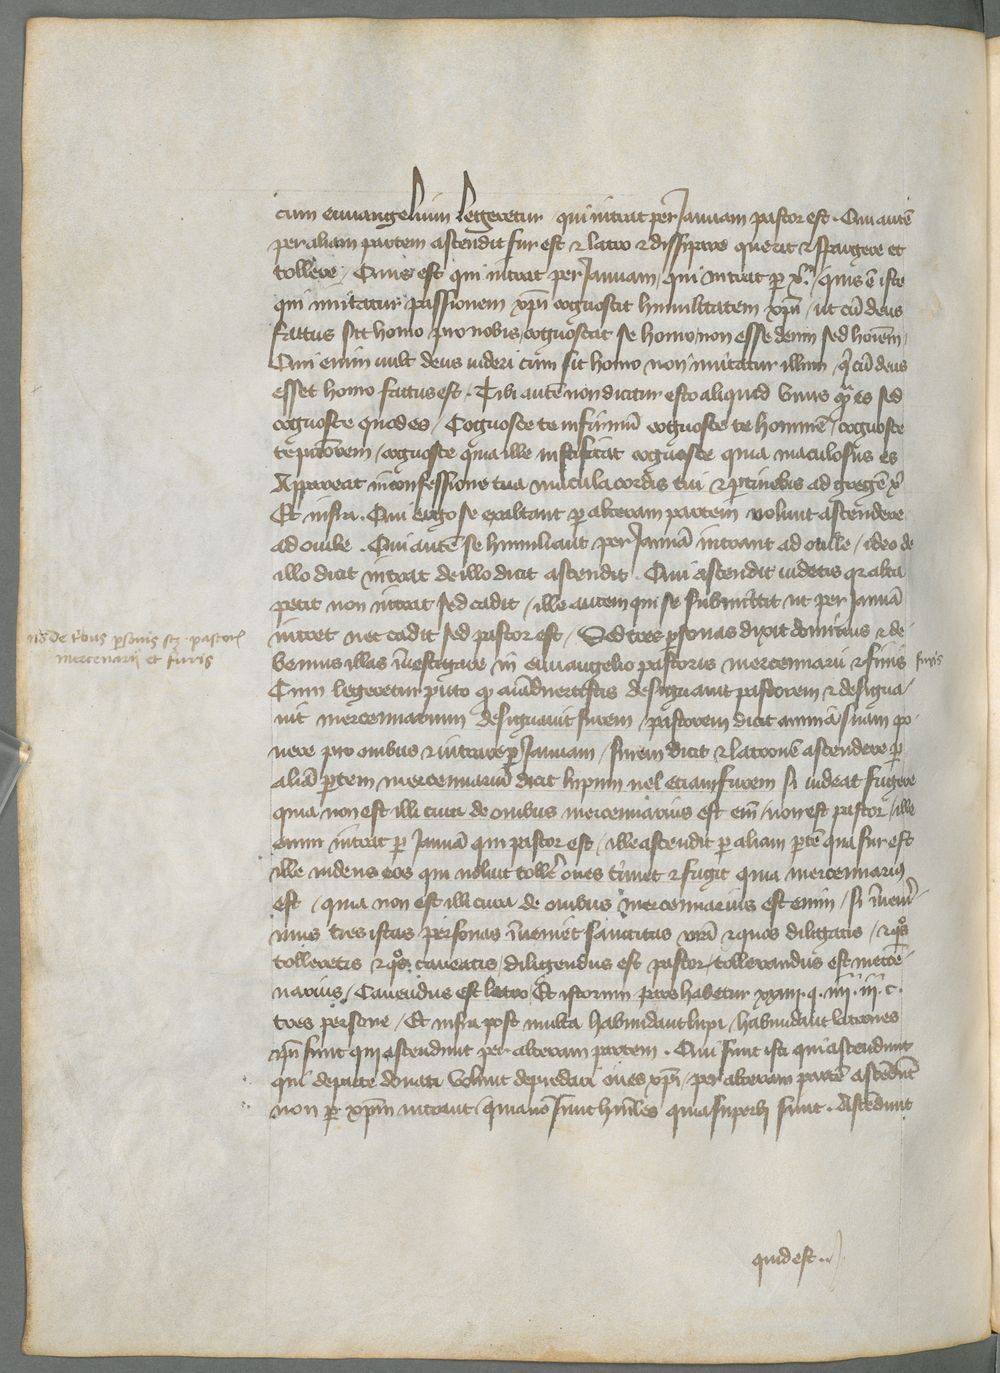 cum euuangelium legeretur / qui intrat per Januam pastor est . Qui autē
per aliam partem ascendit fur est ⁊ latro ⁊ dissipare querit ⁊ spargere et
tollere / Quis est qui intrat per Januam / qui intrat p xp̄m / quis ē iste
qui imitatur passionem xpī cognoscit humilitatem xpī / ut cū deus
factus sit homo pro nobis / cognoscat se homo non esse deum sed hoīem /
Qui enim uult deus uideri cum sit homo non imitatur illum / q̄ cū deus
esset homo factus est . Tibi autē non dicitur esto aliquid minus q̄ es sed
cognosce quod es / Cognosce te infirmū cognosce te hominē / cognosce
te pctōrem / cognosce quia ille iustificat cognosce quia maculosus es
Appareat in confessione tua macula cordis tui ⁊ ptinebis ad gregē xpī
Et infra . Qui ergo se exaltant p alteram partem uolunt ascendere
ad ouile . Qui autē se humiliant per Januā intrant ad ouile / ideo de
illo dicit intrat de illo dicit ascendit . Qui ascendit uidetis qr alta
petit non intrat sed cadit / ille autem qui se submittit ut per Januā
intret nec cadit sed pastor est / Sed tres psonas dixit dominus ⁊ de-
bemus illas īuestigare in euuangelio pastoris mercennarii ⁊ furis
Cum legeretur puto q aīaduertistis designauit pastorem ⁊ designa-
uit mercennarium designauit furem / pastorem dicit animā suam po-
nere pro ouibus ⁊ intrare p Januam / furem dicit ⁊ latronē ascendere p
aliā ptem / mercennariū dicit lupum uel etiam furem si uideat fugere
quia non est illi cura de ouibus mercennarius est enī / non est pastor / ille
enim intrat p Januā qui pastor est / ille ascendit p aliam ptē quia fur est
ille uidens eos qui uolūt tollere oues timet ⁊ fugit quia mercennarius
est / quia non est illi cura de ouibus mercennarius est enim / si īueneri-
mus tres istas personas īueniet sanctitas vrā ⁊ quos diligatis / ⁊ qͦs
tolleretis ⁊ qͦs caueatis / diligendus est pastor / tollerandus est mercē-
narius / Cauendus est latro / Et istorum pars habetur xxiii . q . iiii . iii . c .
tres persone / Et infra post multa habundant lupi / habundant latrones
ipī sunt qui ascendunt per alteram partem . Qui sunt isti qui ascendunt
qui de parte donati uolunt depredari oues xpī / per alteram partē ascēdūt
non p xpm intrant / quia nō sunt hūiles quia superbi sunt . Ascēdunt
nō de tribus psonis scz pastoris
mercenarij et furis
furis
quid est ..